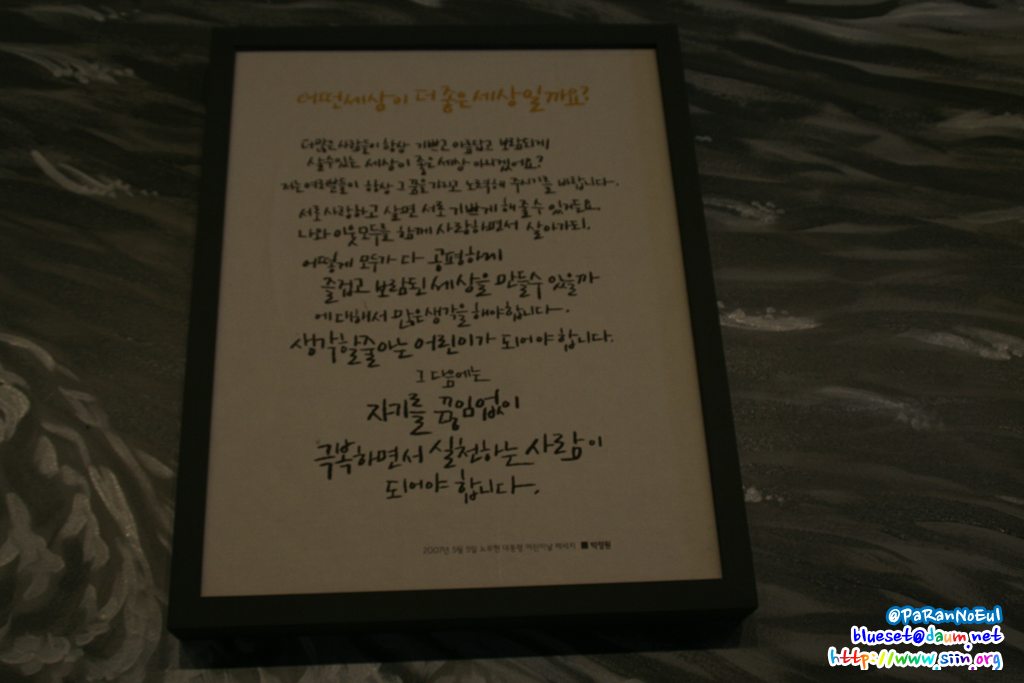 어떤 세상이 더 좋은 세상일까요?
더 많은 사람들이 항상 기쁘고 아름답고 보람되게
살 수 있는 세상이 좋은 세상 아니겠어요?
저는 여러분들이 항상 그 꿈을 가지고 노력해 주시기를 바랍니다.
서로 사랑하고 살면 서로 기쁘게 해 줄 수 있거든요.
나와 이웃 모두를 함께 사랑하면서 살아가되,
어떻게 모두가 다 공평하게
즐겁고 보람된 세상을 만들 수 있을까
에 대해서 많은 생각을 해야 합니다.
생각할 줄 아는 어린이가 되어야 합니다.
그 다음에는
자기를 끊임없이
극복하면서 실천하는 사람이
되어야 합니다.
2007년 5월 5일 노무현 대통령 어린이날 메세지 ■ 박정원
@PaRanNoEul
blueset@daum.net
http://www.siin.org